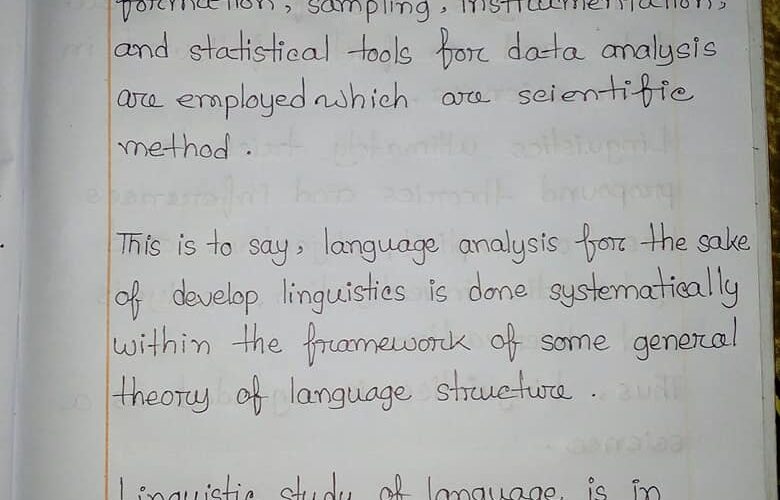 formation, sampling, instrumentation,
and statistical tools for data analysis
are employed which are scientific
method.
This is to say, language analysis for the sake
of develop linguistics is done systematically
within the framework of some general
theory of language structure.
Linguistic study of language is in